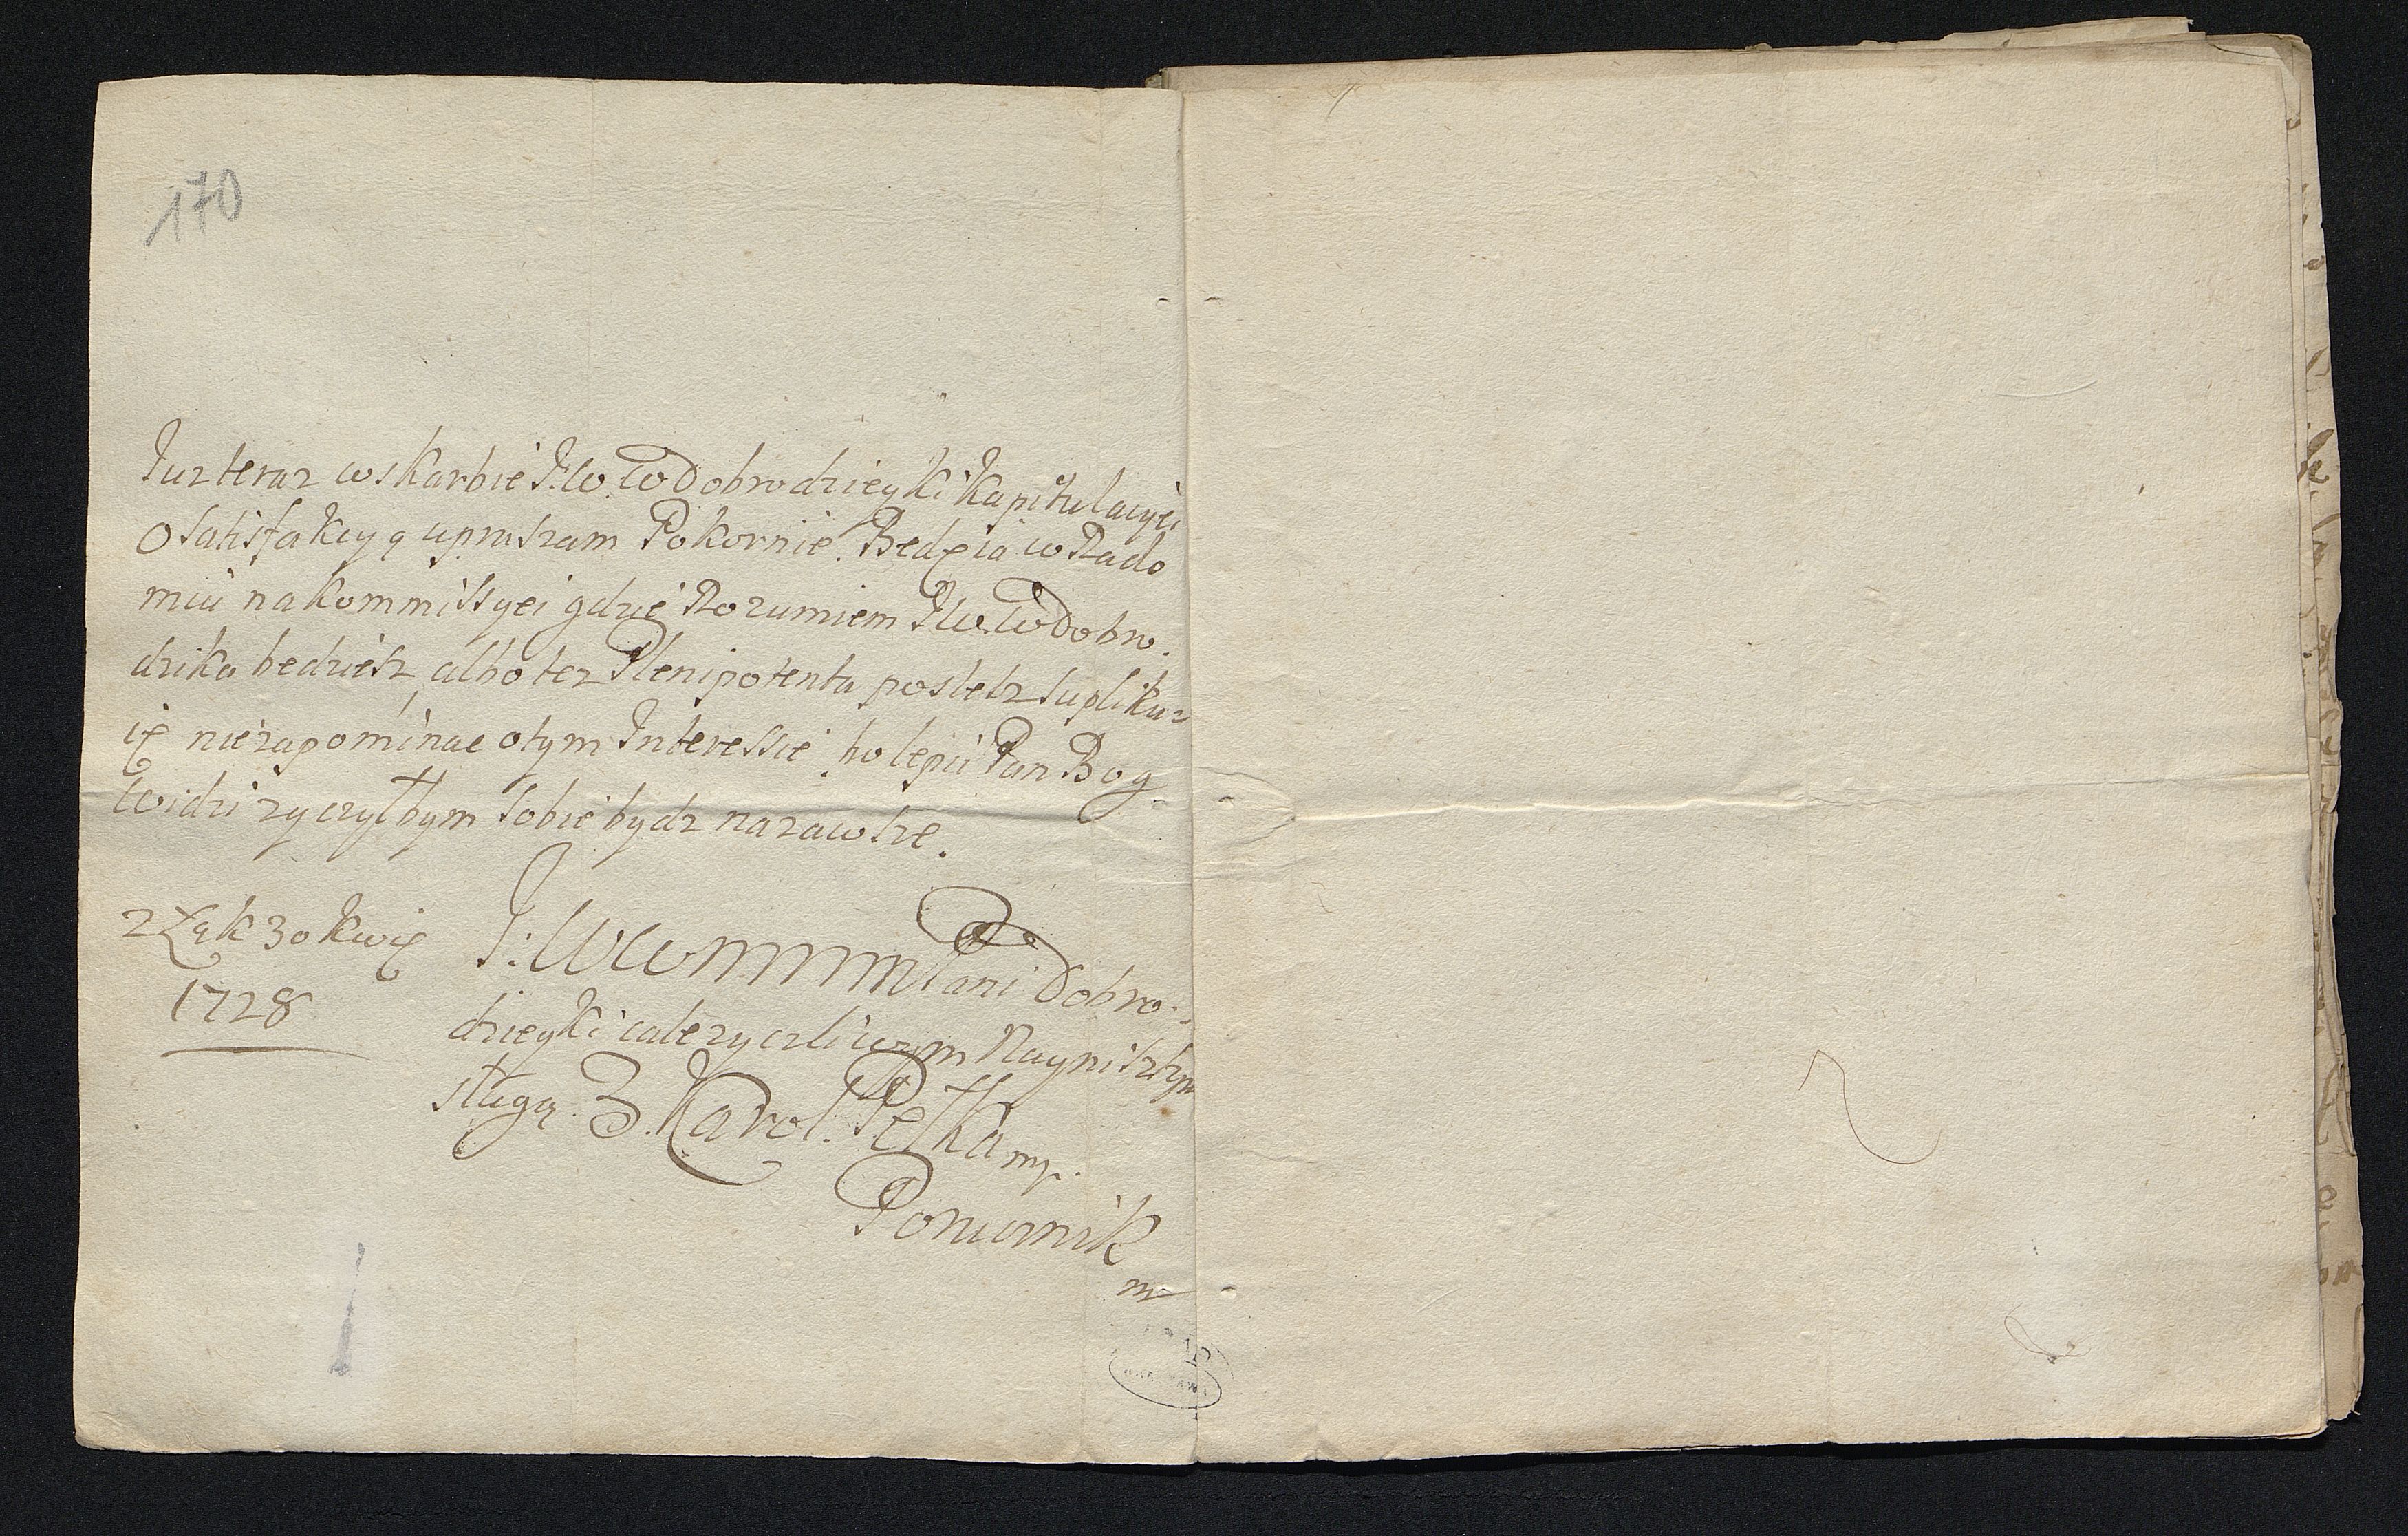 170
Iuz teraz w skarbie J: W. W Dobrodzieyki kapitulacyei
O satisfakcyą upraszam Pokornie. Bedę ia w Rado
miu na kommissyei gdzie Rozumiem J W. W Dobro.
dzika bedziesz albo tez Plenipotenta poslesz supliku=
ię niezapominac otym Interessie bo lepii Pan Bog
widzi zyczyłbym sobie bydz nazawsze.
z Łąk 30 kwię
1728
J: W W mmm Pani Dobro:
dzieyki cale zyczliwym Nayniszszym
sługą. Z. Karol. Pełka mp.